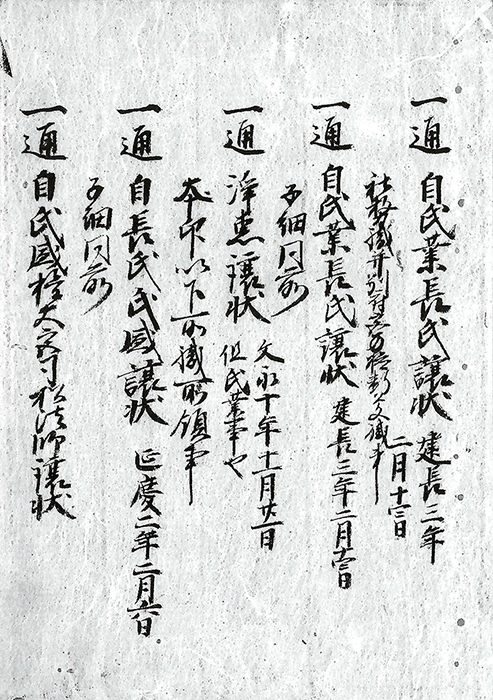 一通 自氏業長氏譲状 建長三年
二月十三日
社務職并別符 職事
一通 自氏業長氏譲状 建長三年二月十三日
子細同前
一通 浄恵譲状 文永十年十一月廿一日
但氏業事也
本印以下 職所領事
一通 自長氏氏盛譲状 延慶二年二月六日
子細同前
一通 自氏盛 松法師譲状